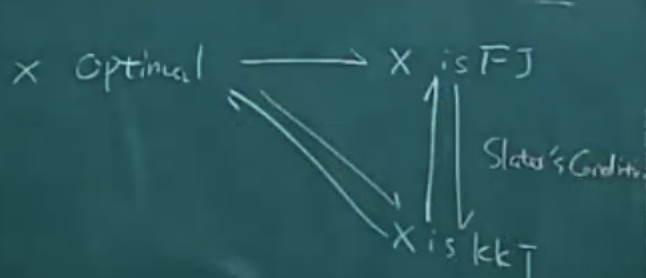 x optimal → x is FJ
Slater's Conditi
x is kkT